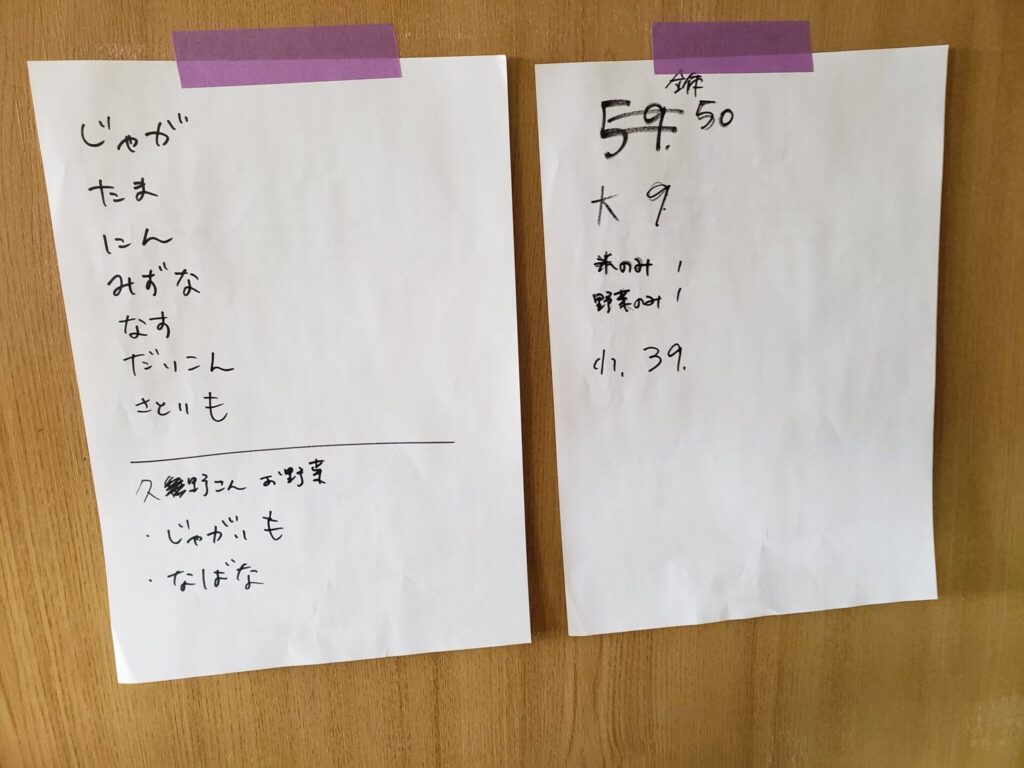 じゃが
たま
にん
みずな
なす
だいこん
さといも
久野さん お野菜
・じゃがいも
・なばな
全体
59. 50
大 9.
米のみ 1
野菜のみ 1
小. 39.